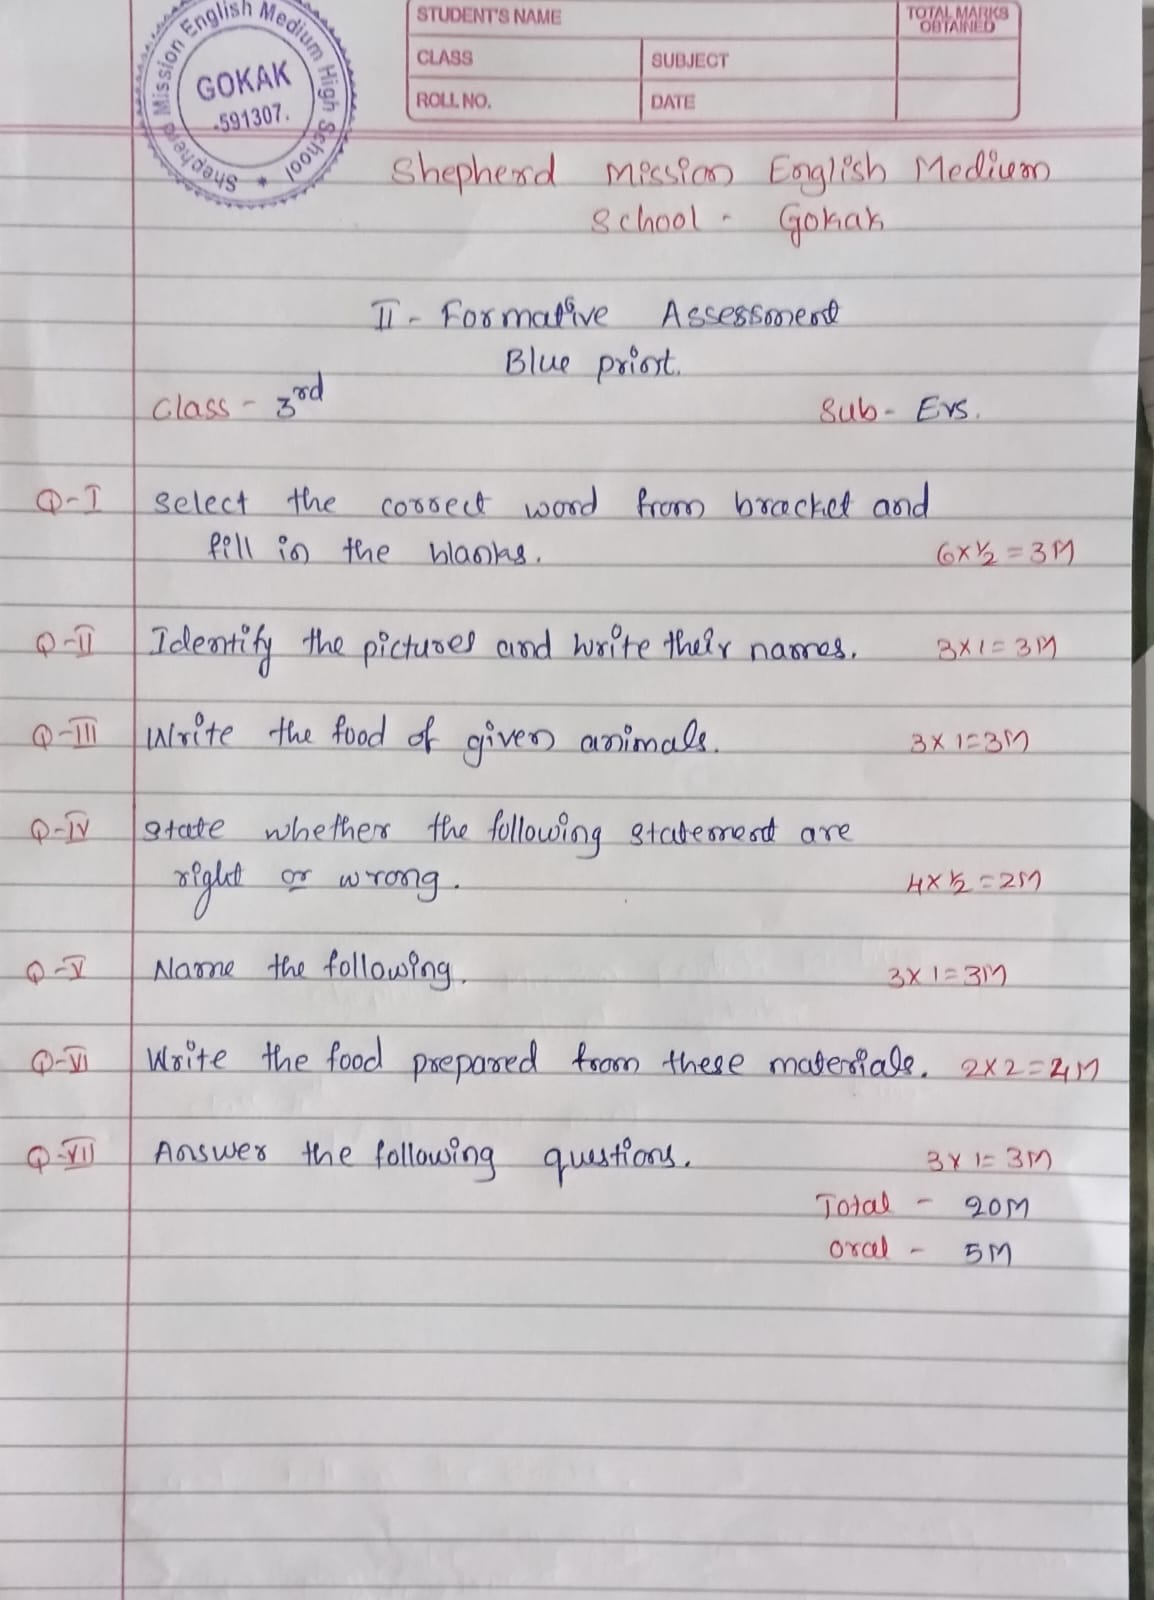 Shepherd Mission English Medium High School
GOKAK
-591307.
STUDENT'S NAME
TOTAL MARKS OBTAINED
CLASS
SUBJECT
ROLL NO.
DATE
Shepherd Mission English Medium
School - Gokak
II - Formative Assessment
Blue print.
Class - 3rd
Sub - Evs.
Q-I Select the correct word from bracket and
fill in the blanks. 6x½ = 3M
Q-II Identify the pictures and write their names. 3x1 = 3M
Q-III Write the food of given animals. 3x1=3M
Q-IV State whether the following statement are
right or wrong. 4x½ = 2M
Q-V Name the following. 3x1=3M
Q-VI Write the food prepared from these materials. 2x2=4M
Q-VII Answer the following questions. 3x1=3M
Total - 20M
Oral - 5M